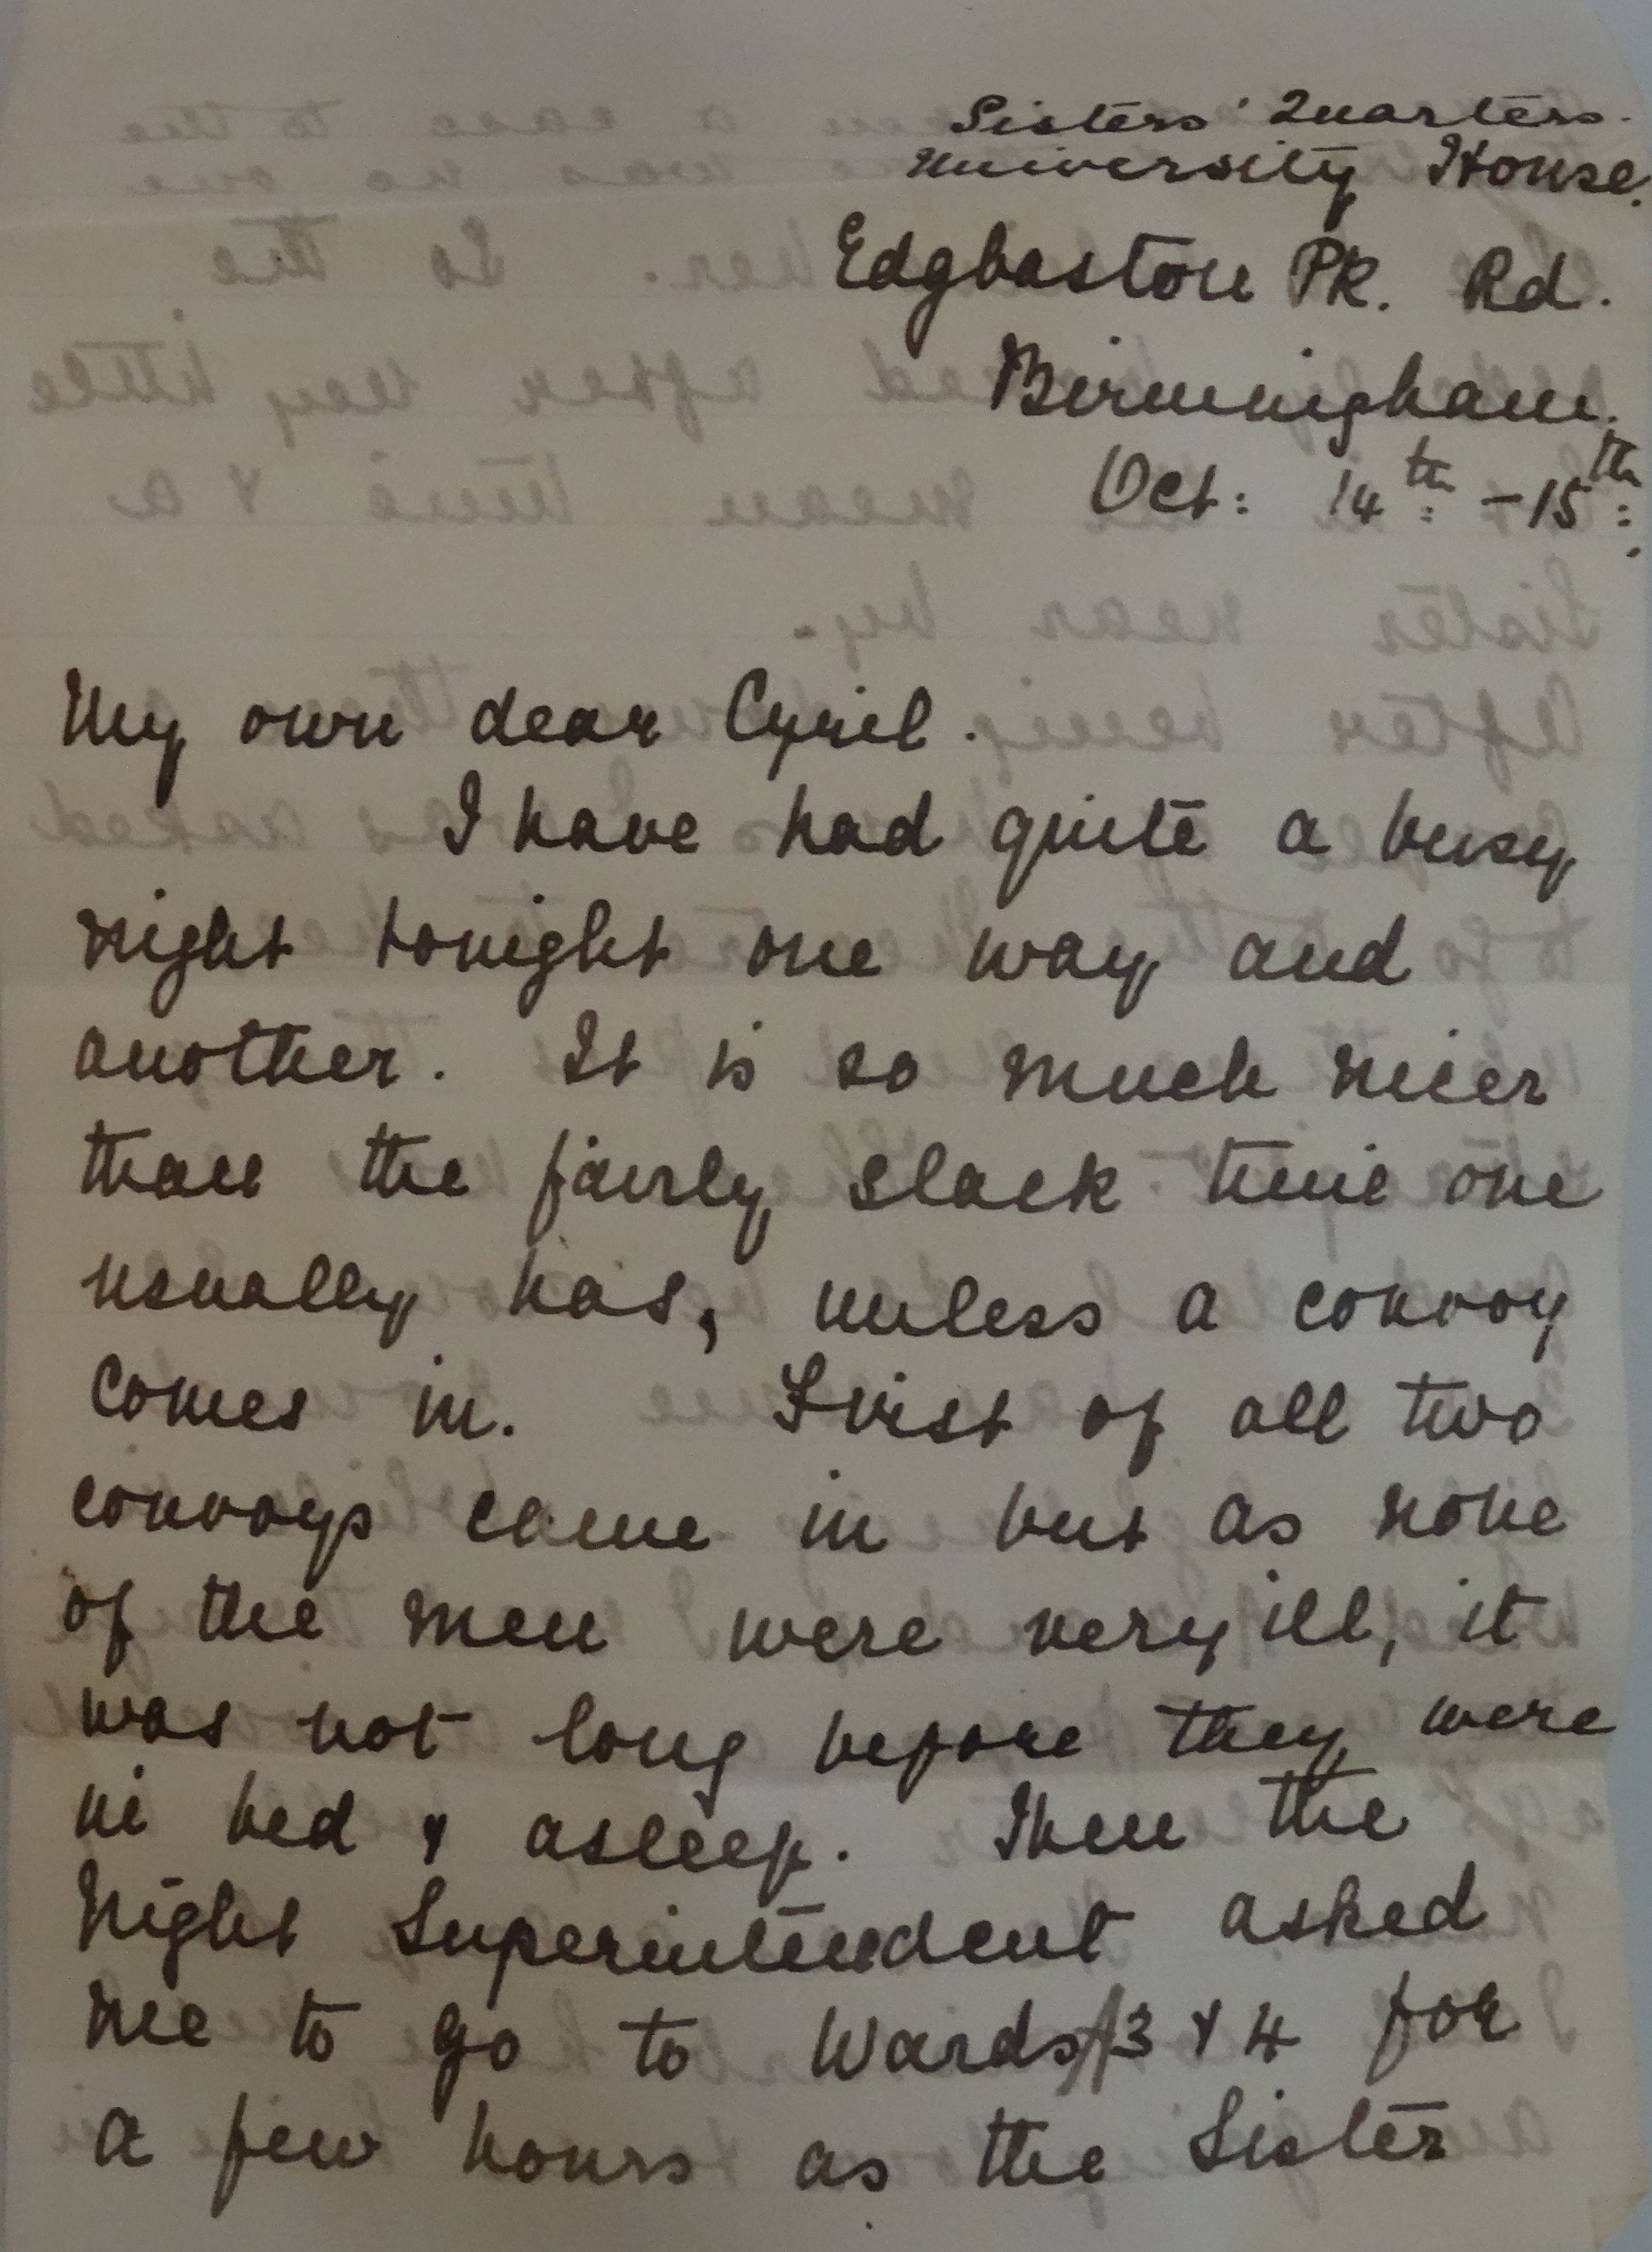 Sisters' Quarters.
University House.
Edgbaston Pk. Rd.
Birmingham.
Oct: 14th - 15th:
My own dear Cyril.
I have had quite a busy
night tonight one way and
another. It is so much nicer
than the fairly slack time one
usually has, unless a convoy
comes in. First of all two
convoys came in but as none
of the men were very ill, it
was not long before they were
in bed & asleep. Then the
Night Superintendent asked
me to go to Wards 3 & 4 for
a few hours as the Sister